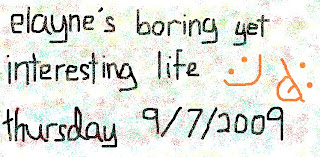 elayne's boring yet
interesting life :) :d
thursday 9/7/2009